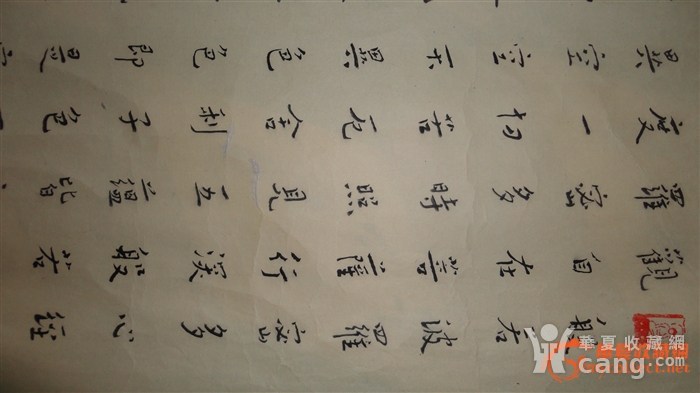 般若波羅蜜多心經
觀自在菩薩行深般若
羅蜜多時照見五蘊皆
度一切苦厄舍利子色
異空空不異色色即是
華夏收藏網
cang.com